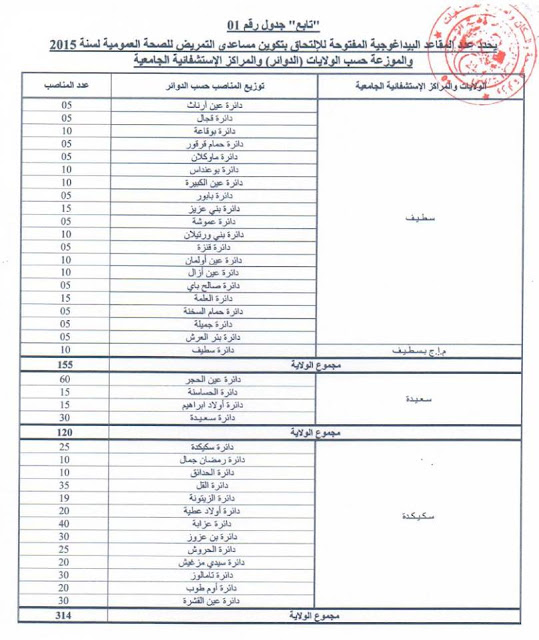 "تابع" جدول رقم 01
يحدد عدد المقاعد البيداغوجية المفتوحة للإلتحاق بتكوين مساعدي التمريض للصحة العمومية لسنة 2015
والموزعة حسب الولايات (الدوائر) والمراكز الإستشفائية الجامعية
الولايات والمراكز الإستشفائية الجامعية توزيع المناصب حسب الدوائر عدد المناصب
دائرة عين أرناث 05
دائرة قجال 05
دائرة بوقاعة 10
دائرة حمام قرقور 05
دائرة ماوكلان 05
دائرة بوعنداس 10
دائرة عين الكبيرة 10
دائرة بابور 05
دائرة بني عزيز 15
سطيف دائرة عموشة 05
دائرة بني ورتيلان 10
دائرة قنزة 05
دائرة عين أولمان 10
دائرة عين أزال 10
دائرة صالح باي 05
دائرة العلمة 15
دائرة حمام السخنة 05
دائرة جميلة 05
دائرة بئر العرش 05
م.إ.ج بسطيف دائرة سطيف 10
مجموع الولاية 155
دائرة عين الحجر 60
سعيدة دائرة الحساسنة 15
دائرة أولاد ابراهيم 15
دائرة سعيدة 30
مجموع الولاية 120
دائرة سكيكدة 25
دائرة رمضان جمال 10
دائرة الحدائق 10
دائرة القل 35
دائرة الزيتونة 19
سكيكدة دائرة أولاد عطية 20
دائرة عزابة 40
دائرة بن عزوز 30
دائرة الحروش 25
دائرة سيدي مزغيش 20
دائرة تامالوز 30
دائرة أوم طوب 20
دائرة عين القشرة 30
مجموع الولاية 314